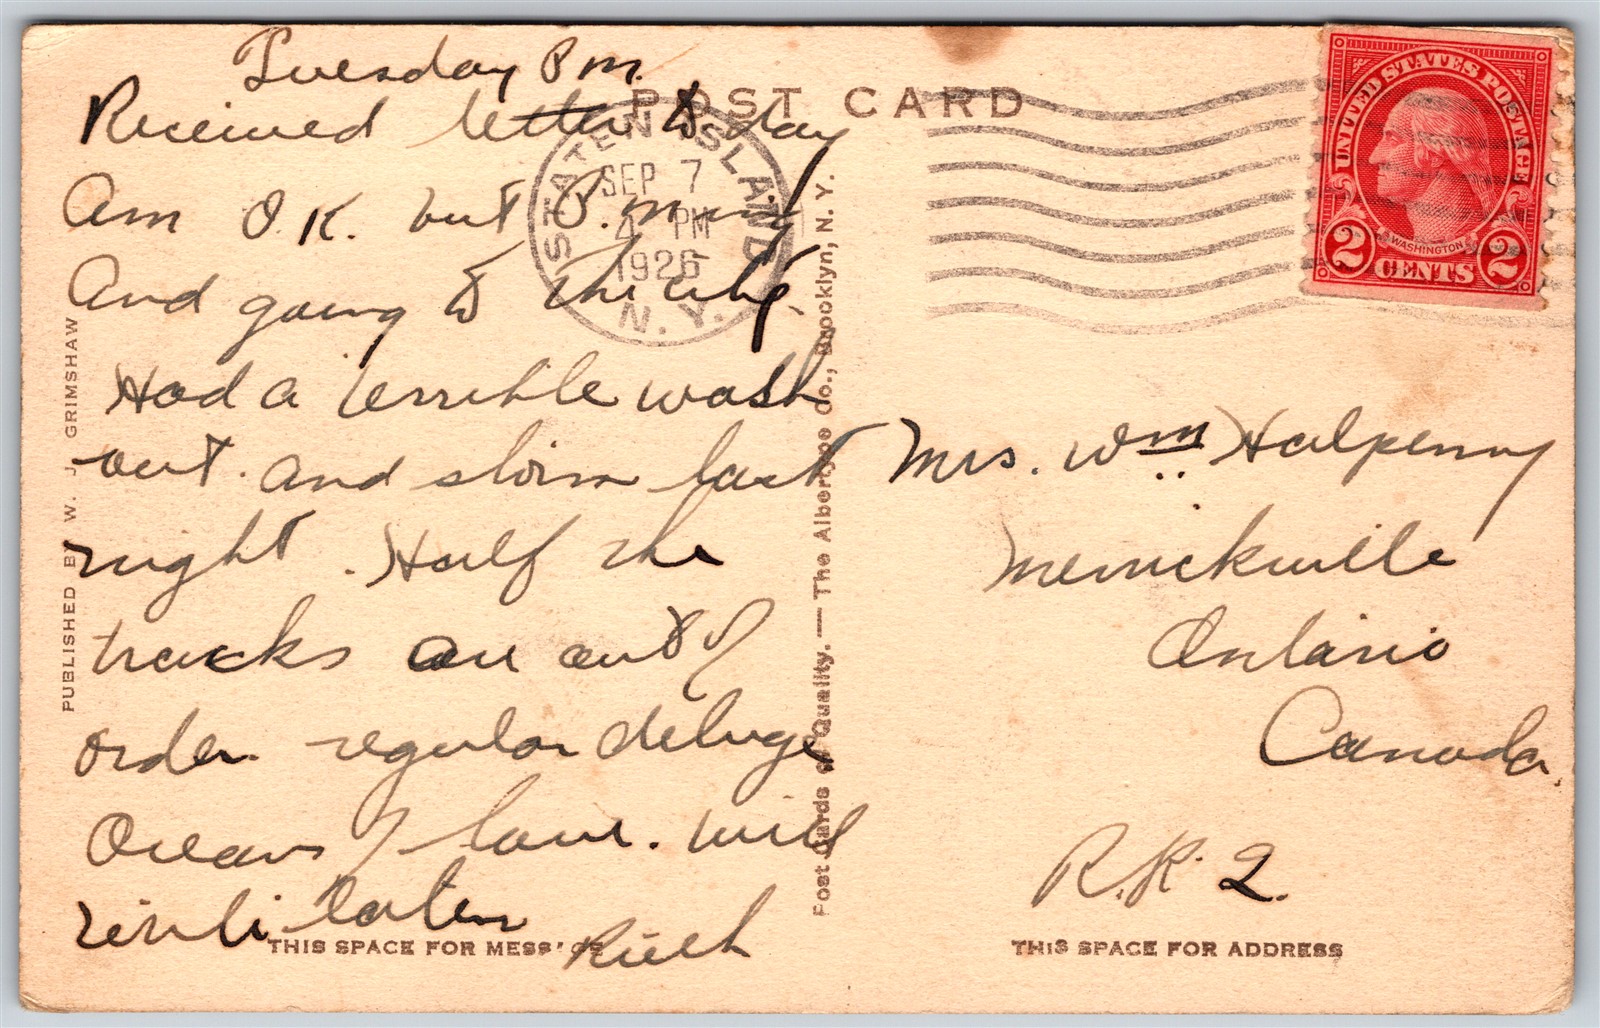 POST CARD
Tuesday P m.
Received letter to day
Am O.K. but
And going to the city.
Had a terrible wash
out. and storm last
night. Half the
tracks are out of
order. regular deluge
Oceans of love. will
write later
Ruth
THIS SPACE FOR MESS
PUBLISHED BY W. J. GRIMSHAW
Post Cards of Quality. — The Albertype Co., Brooklyn, N. Y.
STATEN ISLAND
SEP 7
4 PM
1926
N. Y.
UNITED STATES POSTAGE
WASHINGTON
2 CENTS 2
Mrs. Wm Halpenny
Merrickville
Ontario
Canada.
R.R. 2.
THIS SPACE FOR ADDRESS